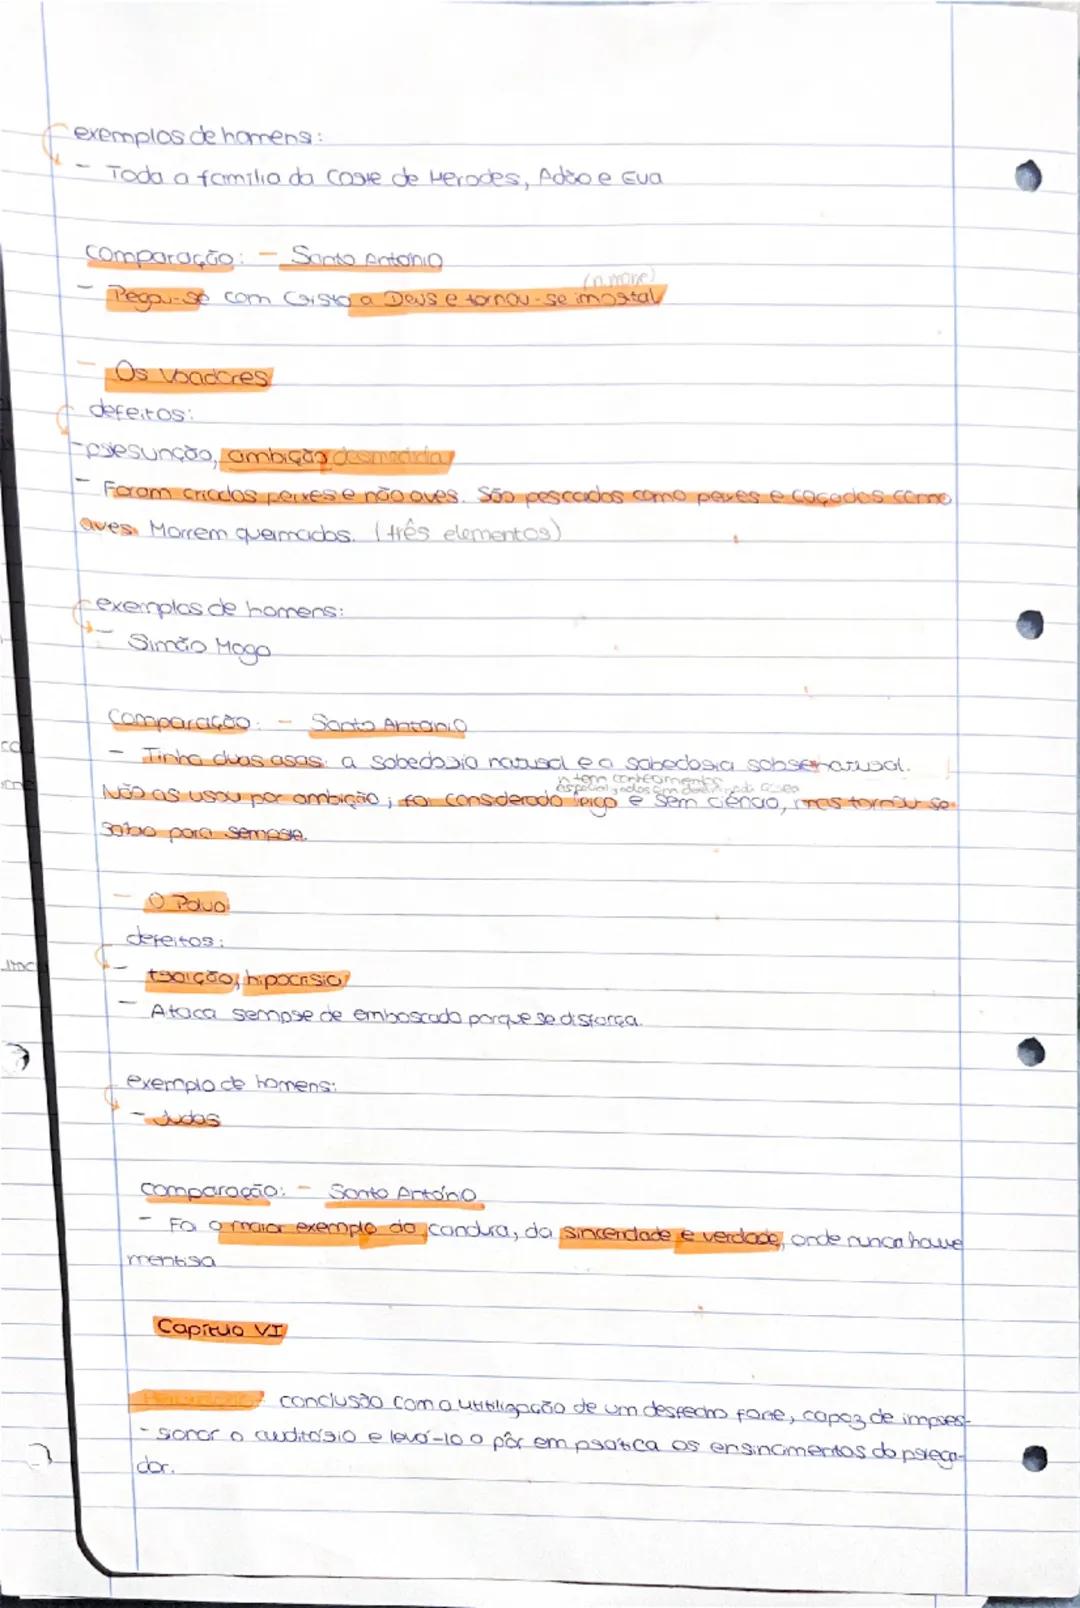 exemplos de homens:
- Toda a família da Corte de Herodes, Adão e Eva
comparação: - Santo António
(n morre)
- Pegou-se com Cristo a Deus e tornou-se imortal
- Os Voadores
defeitos:
-presunção, ambição desmedida
- Foram criados peixes e não aves. São pescados como peixes e caçados como
aves. Morrem queimados. (três elementos)
exemplos de homens:
- Simão Mago
Comparação: - Santo António
- Tinha duas asas: a sabedoria natural e a sabedoria sobrenatural.
n tem conhecimentos
especializados em determinada área
Não as usou por ambição; foi considerado leigo e sem ciência, mas tornou-se
sábio para sempre.
- O Polvo
defeitos:
- traição, hipocrisia
- Ataca sempre de emboscada porque se disfarça.
exemplo de homens:
- Judas
comparação: - Santo António
- Foi o maior exemplo da candura, da sinceridade e verdade, onde nunca houve
mentira
Capítulo VI
conclusão com a utilização de um desfecho forte, capaz de impres-
-sionar o auditório e levá-lo a pôr em prática os ensinamentos do prega-
dor.